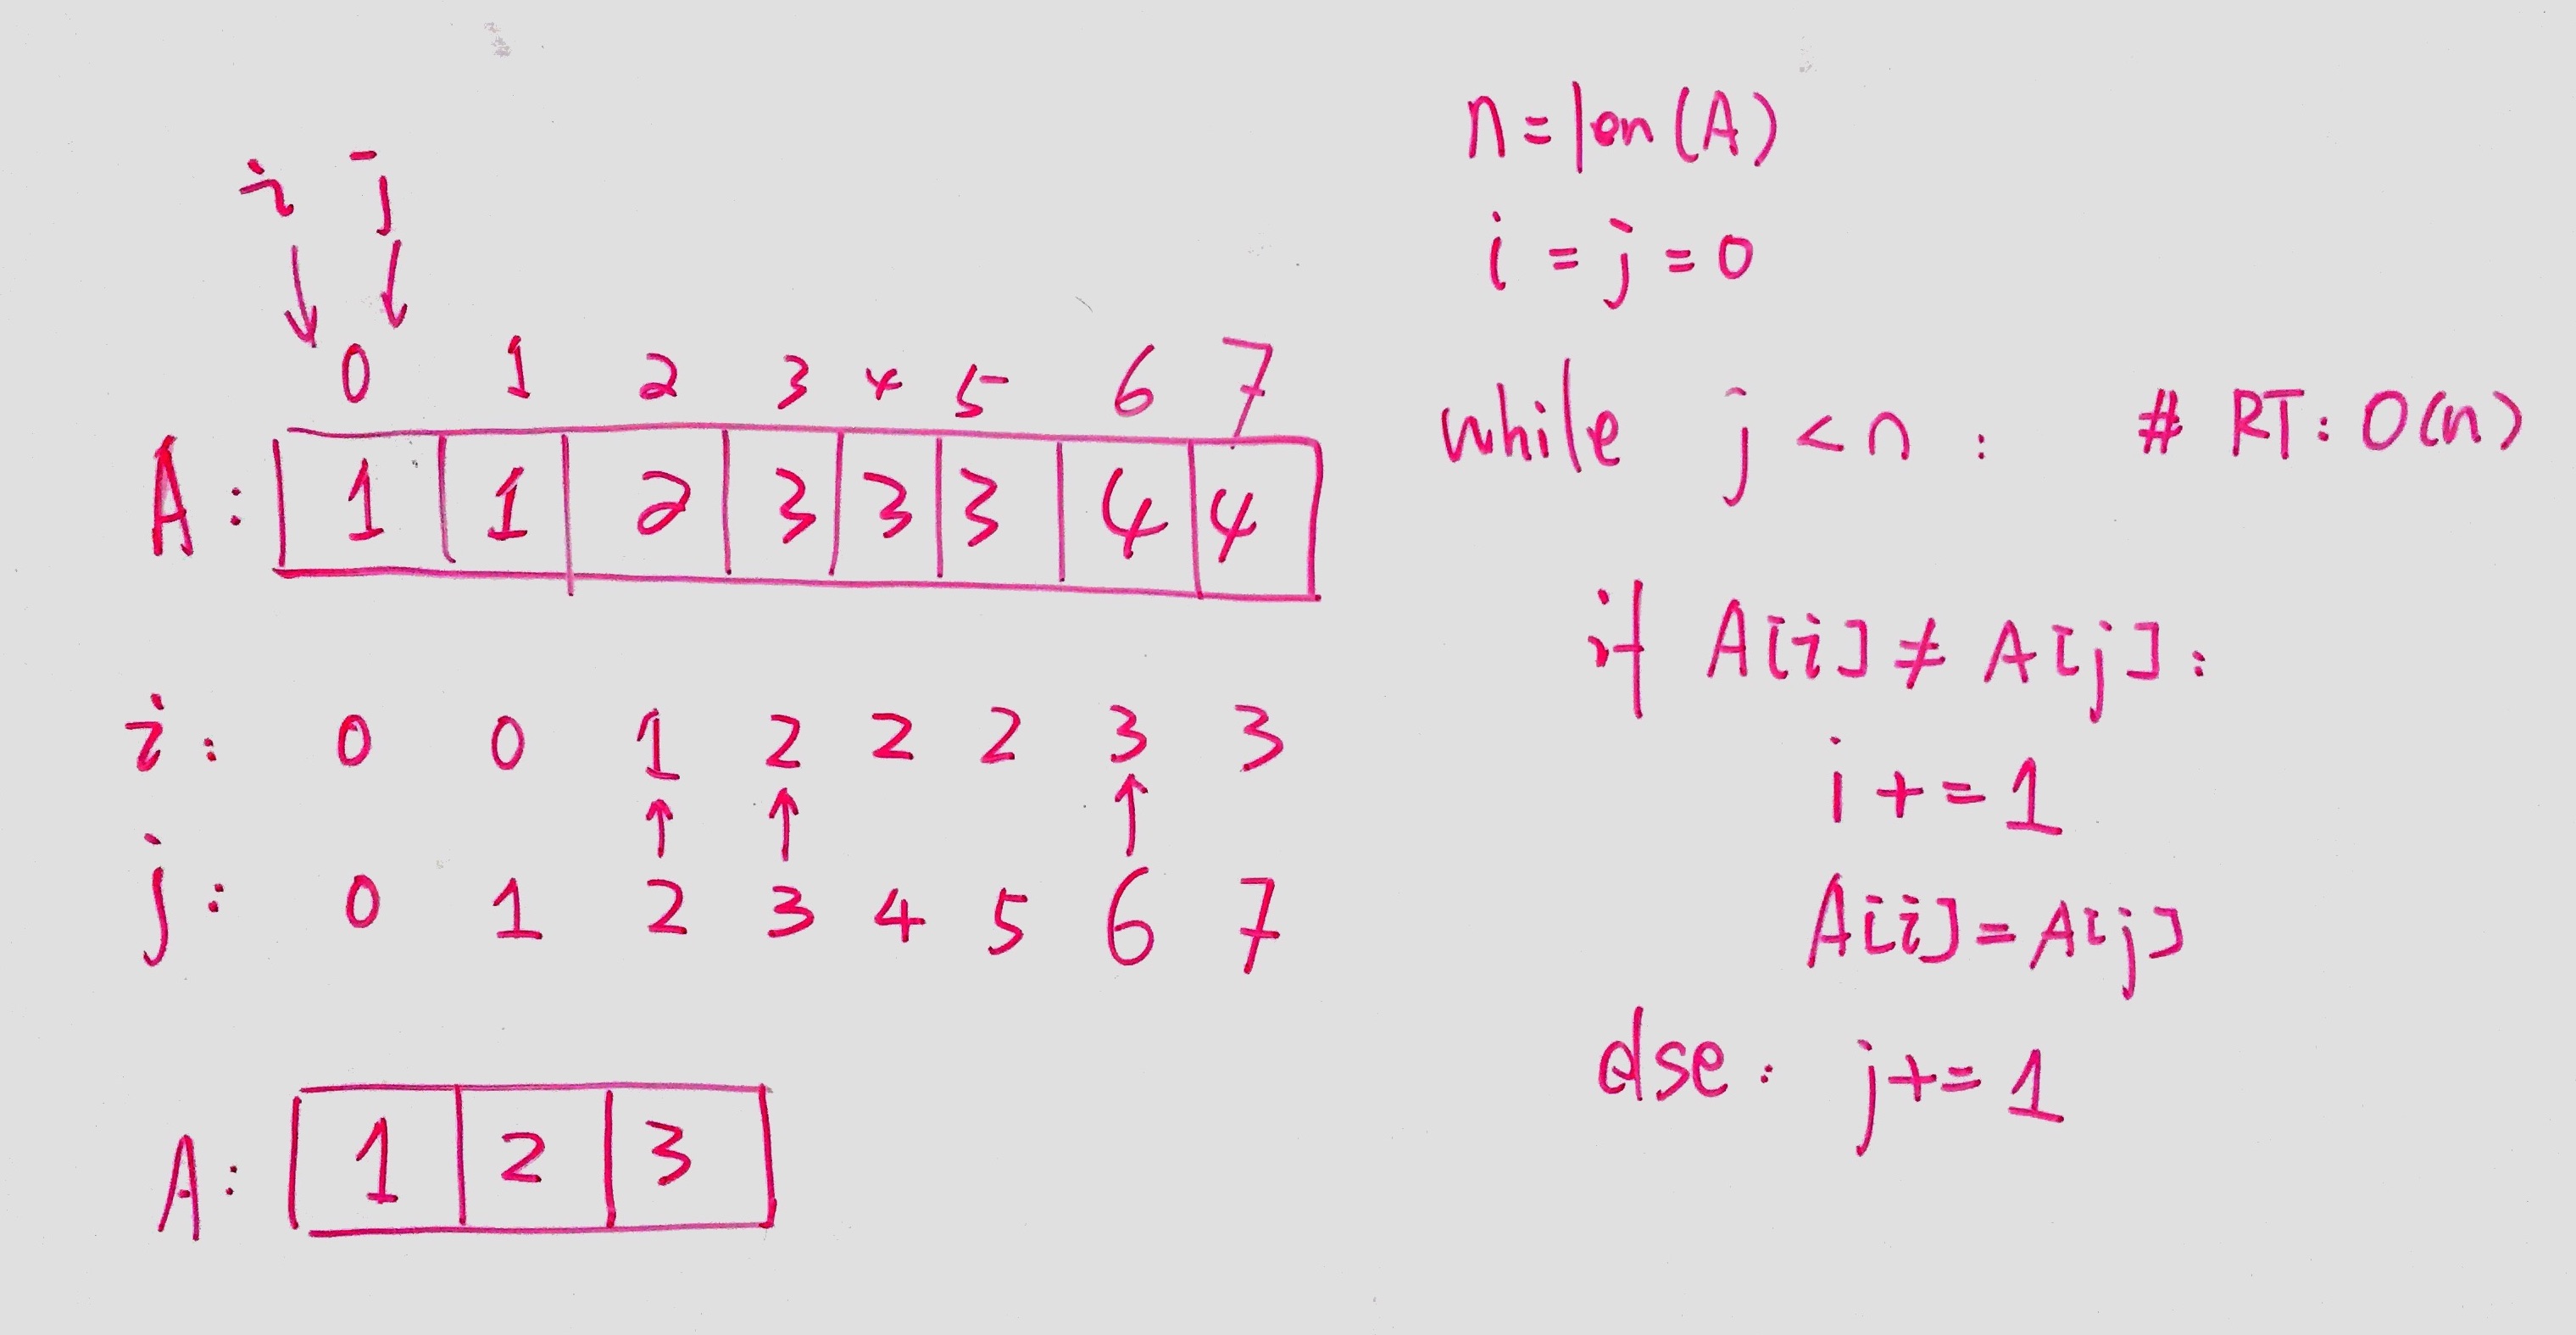 i j
0 1 2 3 4 5 6 7
A: 1 1 2 3 3 3 4 4
i: 0 0 1 2 2 2 3 3
j: 0 1 2 3 4 5 6 7
A: 1 2 3
n = len(A)
i = j = 0
while j < n : # RT: O(n)
if A[i] ≠ A[j]:
i += 1
A[i] = A[j]
else: j += 1